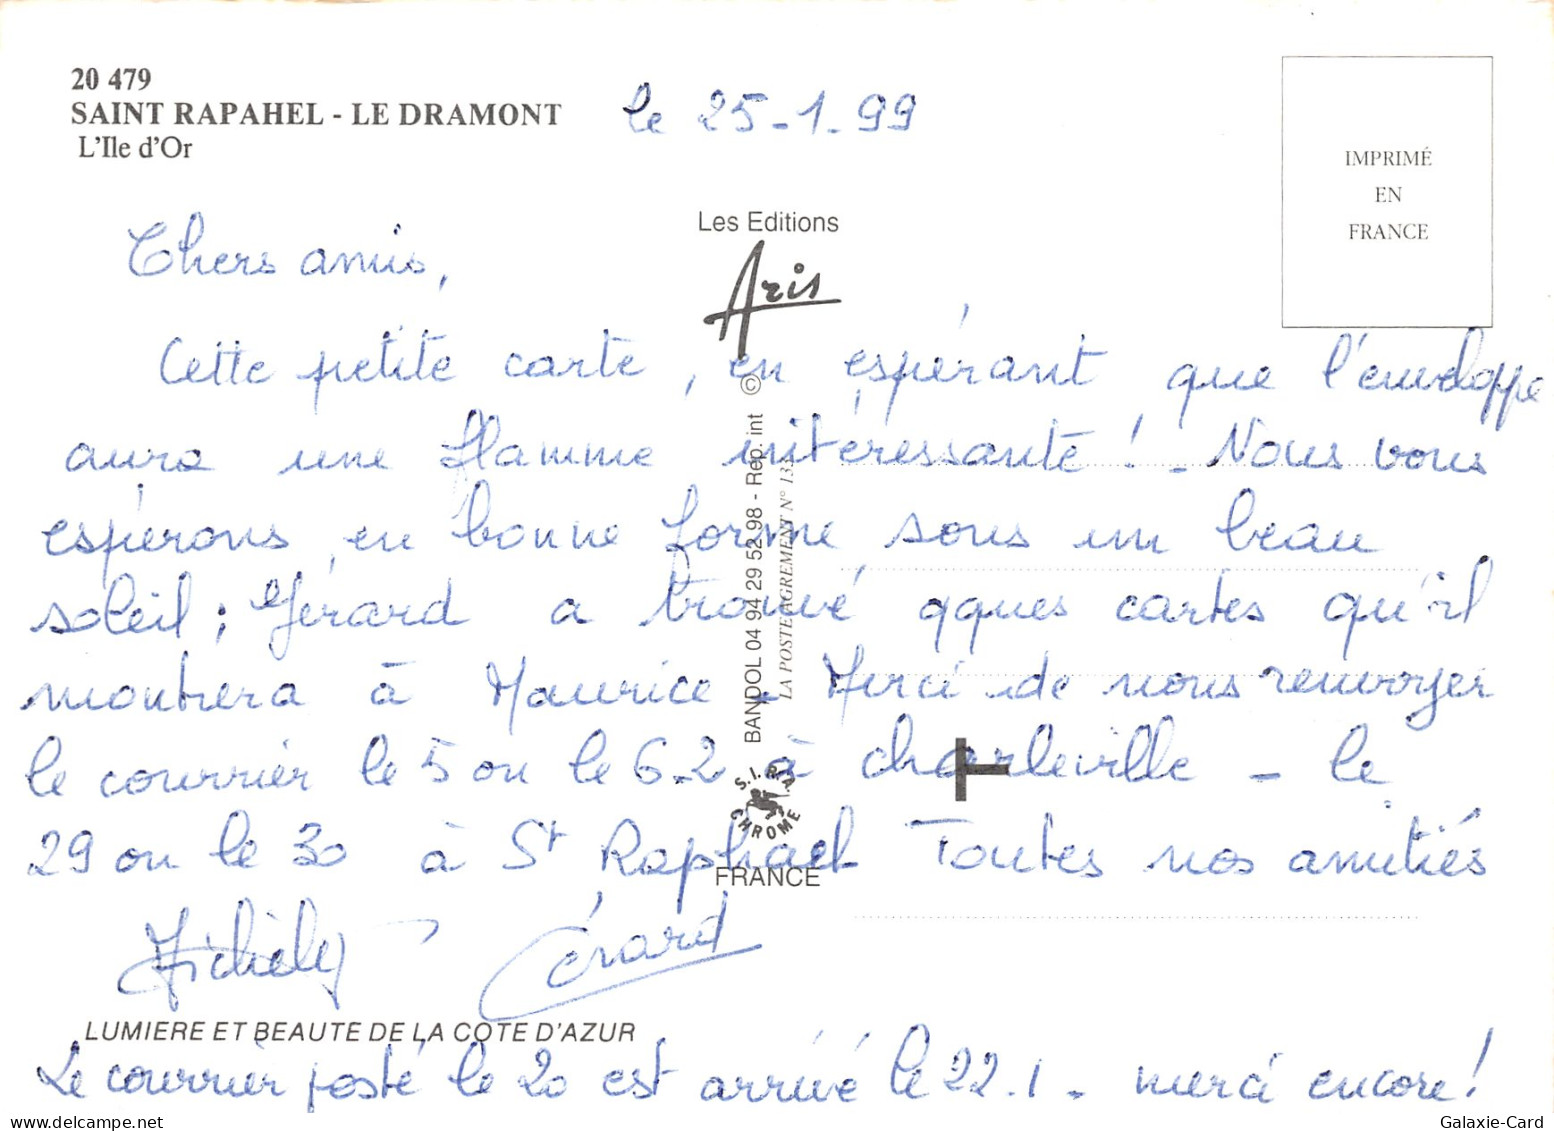 20 479
SAINT RAPAHEL - LE DRAMONT
L'Ile d'Or
le 25-1-99
IMPRIMÉ
EN
FRANCE
Les Editions
Aris
Chers amis,
Cette petite carte, en espérant que l'enveloppe
aura une flamme intéressante! - Nous vous
espérons, en bonne forme sous un beau
soleil; Gérard a trouvé qques cartes qu'il
montrera à Maurice - Merci de nous renvoyer
le courrier le 5 ou le 6-2 à Charleville - le
29 ou le 30 à St Raphael Toutes nos amitiés
Michèle Gérard
BANDOL 04 94 29 52 98 - Rep. int ©
LA POSTE AGREMENT N° 133
S.I.R.A.
CHROME
FRANCE
LUMIERE ET BEAUTE DE LA COTE D'AZUR
Le courrier posté le 20 est arrivé le 22.1 - merci encore!
Galaxie-Card